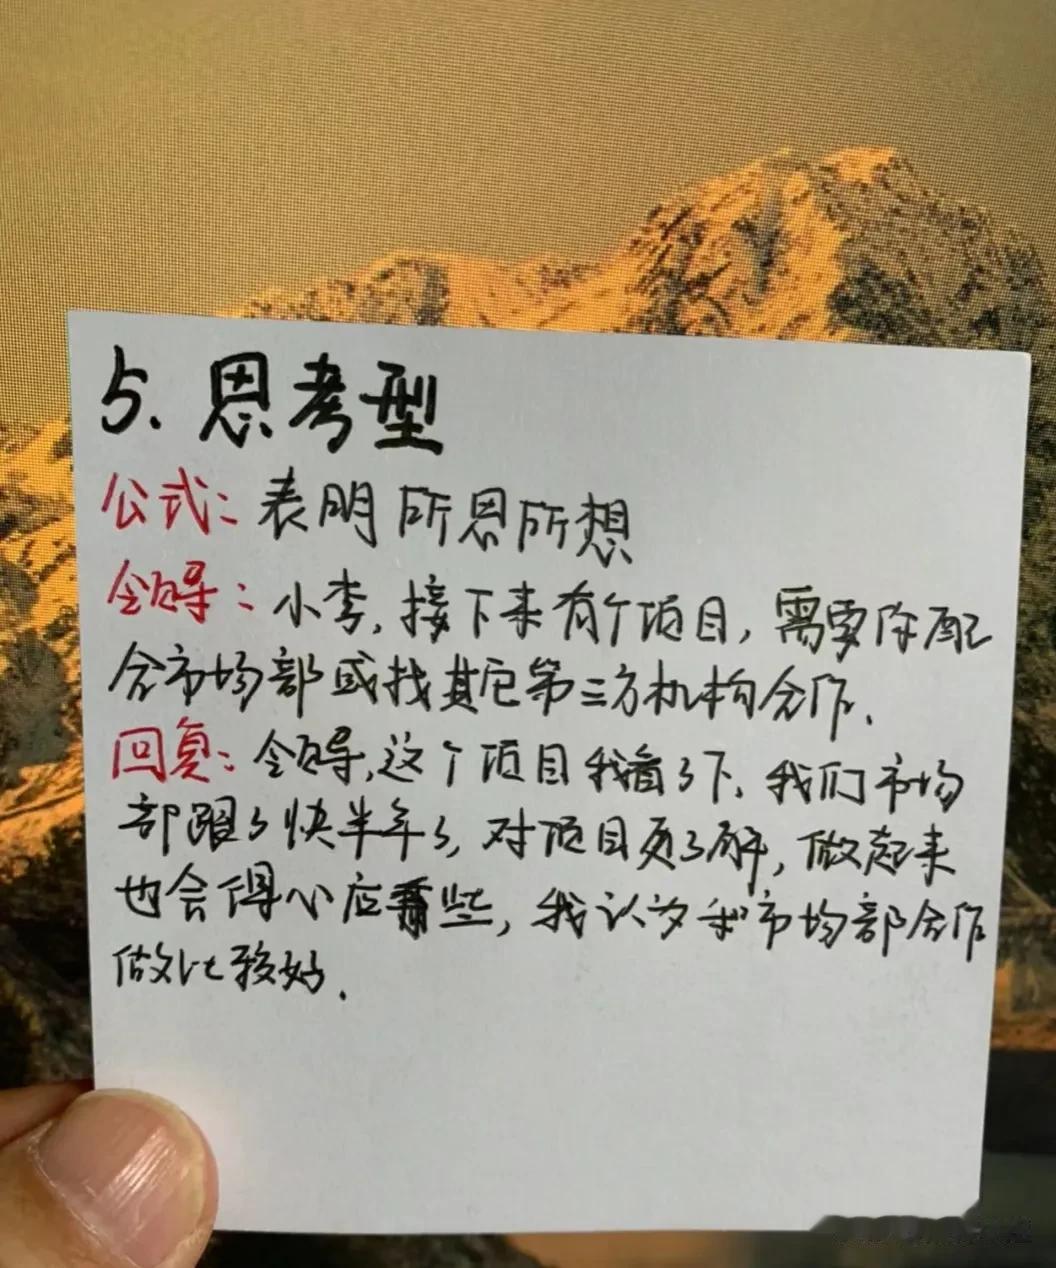 5. 思考型
公式: 表明所思所想
领导: 小李, 接下来有个项目, 需要你配
合市场部或找其它第三方机构合作.
回复: 领导, 这个项目我看了下, 我们市场
部跟了快半年了, 对项目更了解, 做起来
也会得心应手些, 我认为和市场部合作
做比较好.